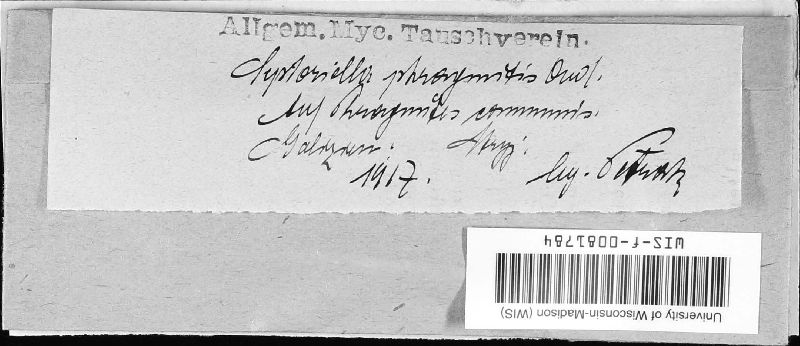 Allgem. Myc. Tauschverein.
Septoriella phragmitis Oud.
Auf Phragmites communis.
Galizien. Stryj.
1917. leg. Petrak
WIS-f-0081784
University of Wisconsin-Madison (WIS)